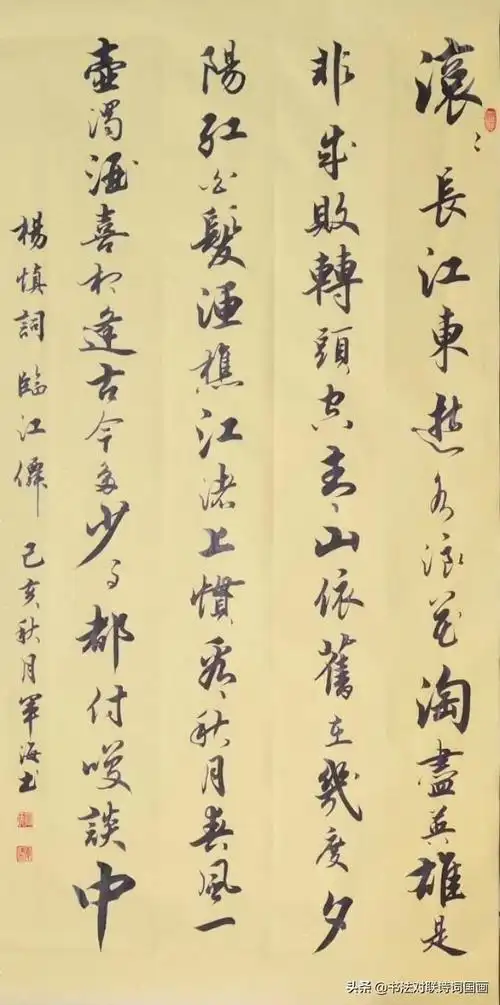 滚〻長江東逝水浪花淘盡英雄是
非成敗轉頭空青山依舊在幾度夕
陽紅白髮漁樵江渚上慣看秋月春風一
壺濁酒喜相逢古今多少事都付咲談中
楊慎詞 臨江僊 己亥秋月軍海書
头条 @书法对联诗词国画